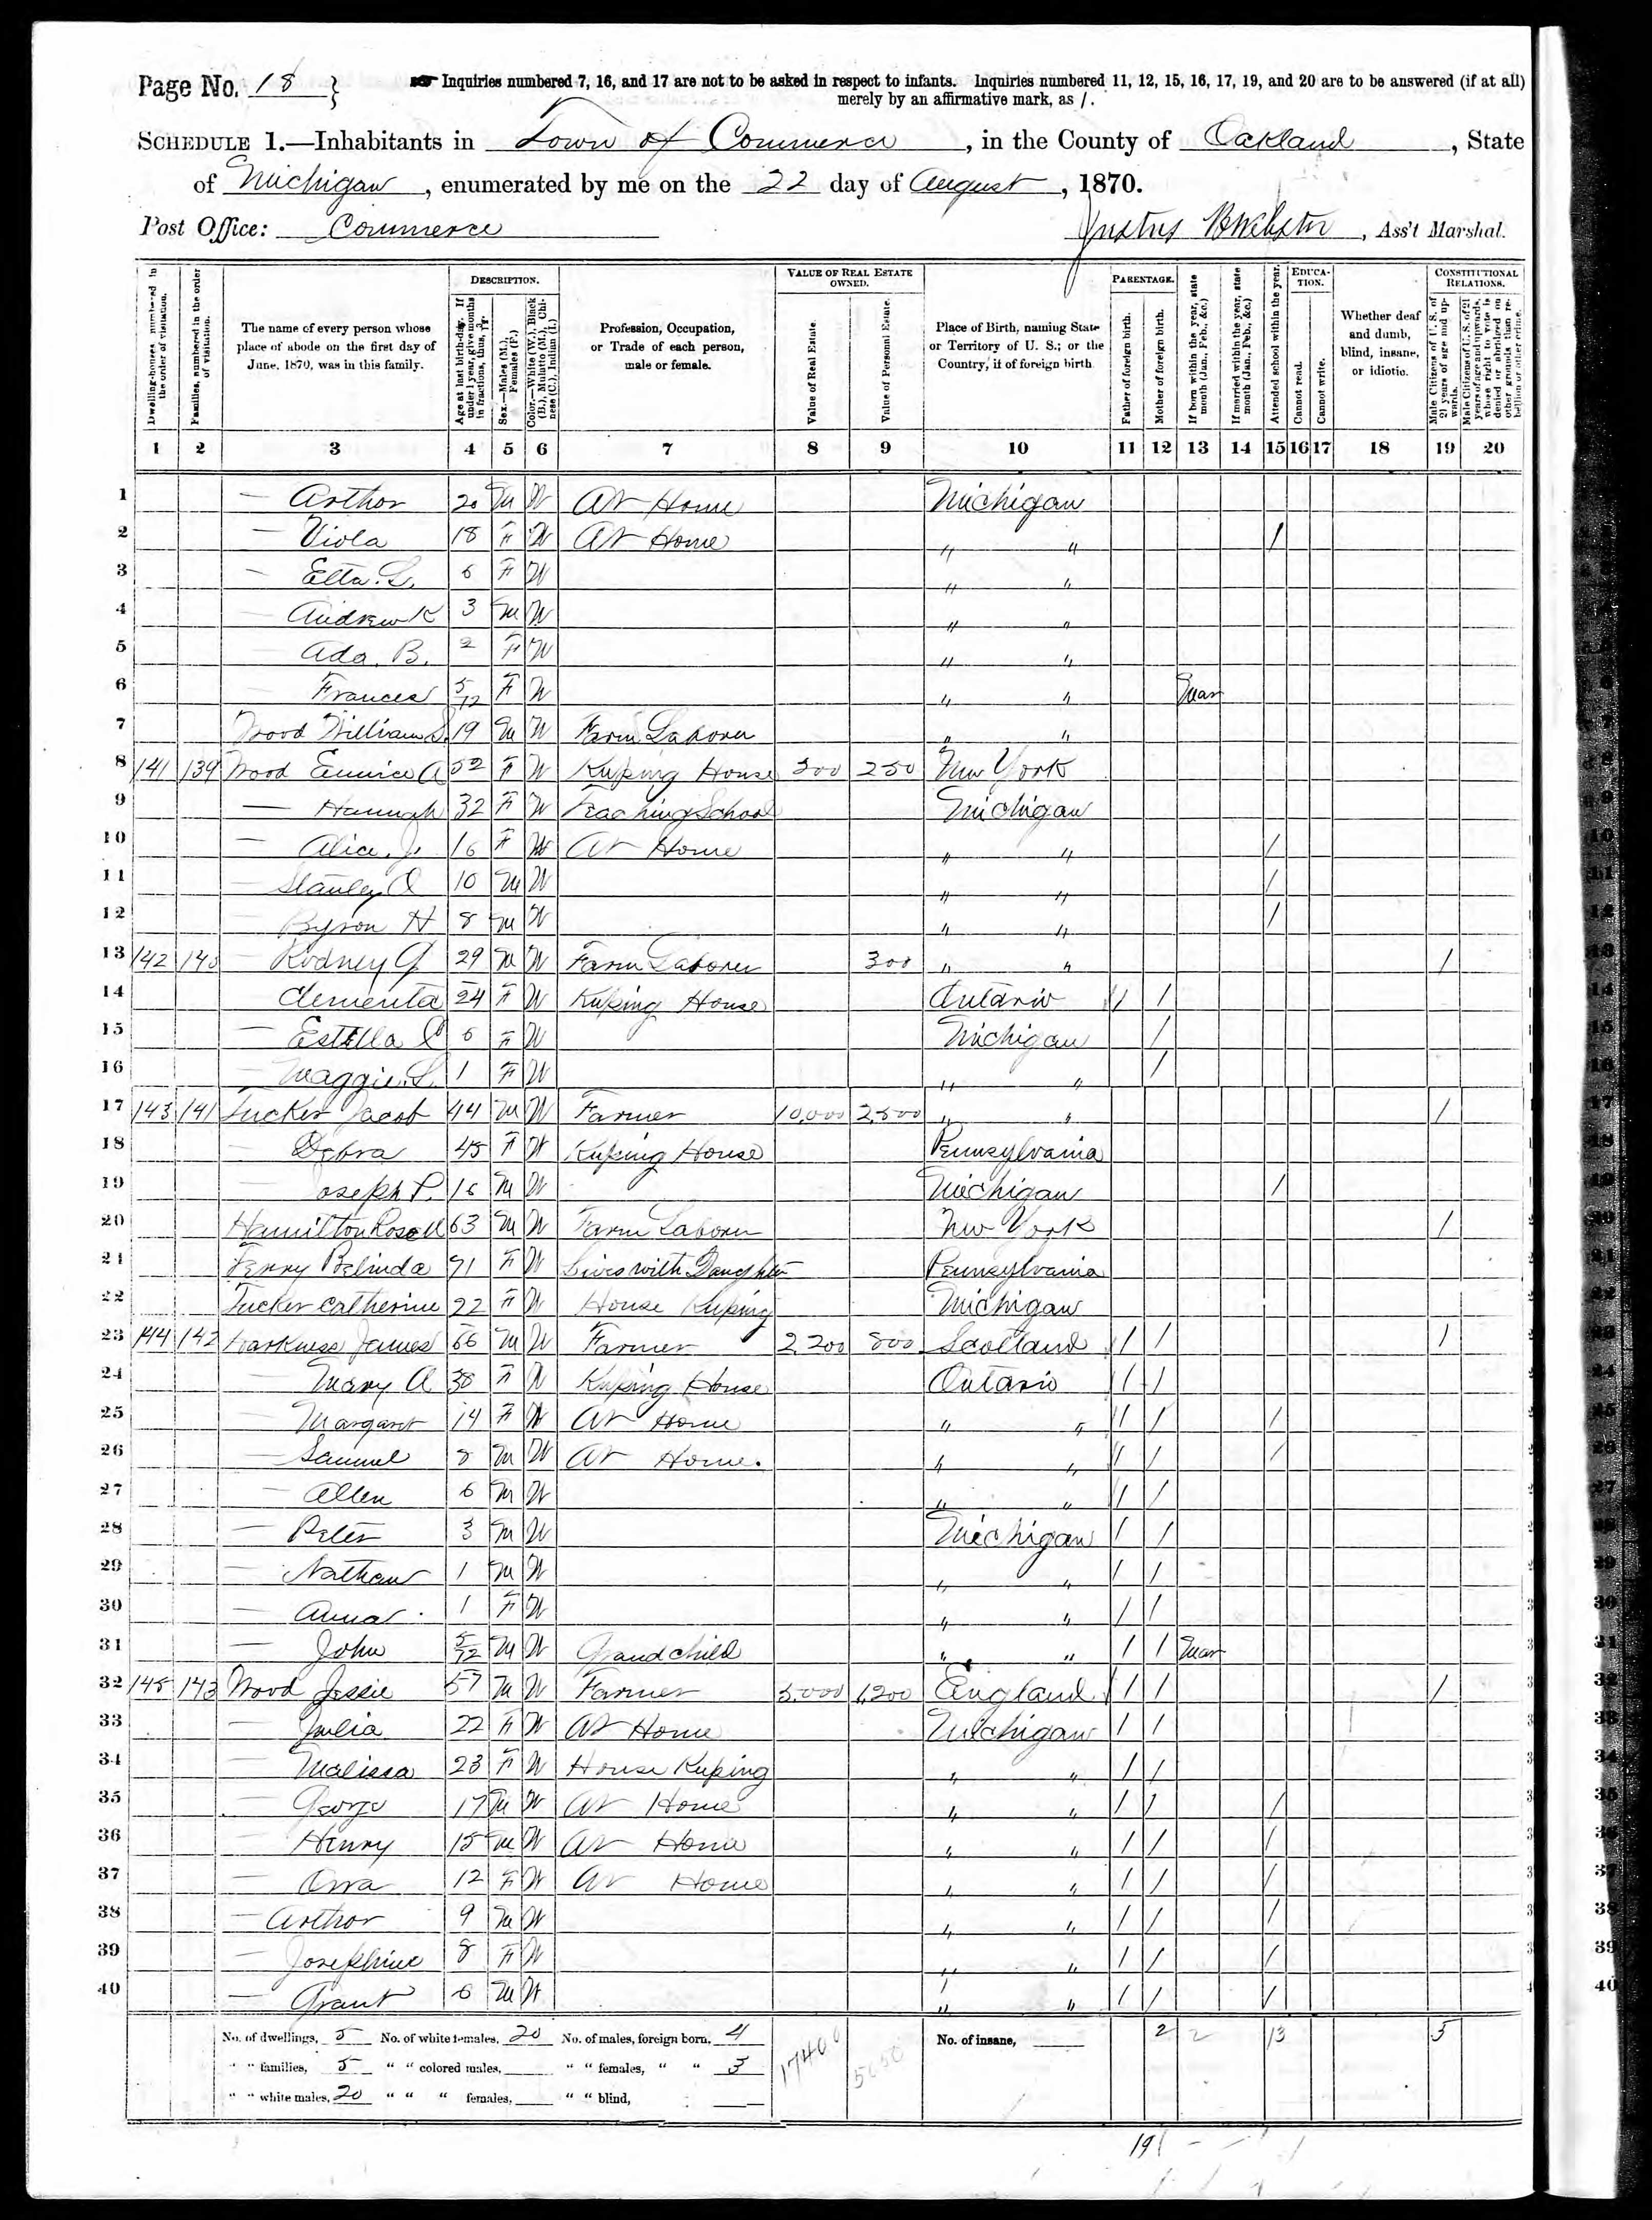 Page No. 18 }
Inquiries numbered 7, 16, and 17 are not to be asked in respect to infants. Inquiries numbered 11, 12, 15, 16, 17, 19, and 20 are to be answered (if at all)
merely by an affirmative mark, as /.
SCHEDULE 1.—Inhabitants in Town of Commerce, in the County of Oakland, State
of Michigan, enumerated by me on the 22 day of August, 1870.
Post Office: Commerce
Justus Webster, Ass't Marshal.
Dwelling-houses, numbered in the order of visitation.
Families, numbered in the order of visitation.
The name of every person whose place of abode on the first day of June, 1870, was in this family.
DESCRIPTION.
Age at last birth-day. If under 1 year, give months in fractions, thus, 3/12.
Sex.—Males (M.), Females (F.)
Color.—White (W.), Black (B.), Mulatto (M.), Chinese (C.), Indian (I.)
Profession, Occupation, or Trade of each person, male or female.
VALUE OF REAL ESTATE OWNED.
Value of Real Estate.
Value of Personal Estate.
Place of Birth, naming State or Territory of U. S.; or the Country, if of foreign birth.
PARENTAGE.
Father of foreign birth.
Mother of foreign birth.
If born within the year, state month (Jan., Feb., &c.)
If married within the year, state month (Jan., Feb., &c.)
Attended school within the year.
EDUCATION.
Cannot read.
Cannot write.
Whether deaf and dumb, blind, insane, or idiotic.
CONSTITUTIONAL RELATIONS.
Male Citizens of U. S. of 21 years of age and upwards.
Male Citizens of U. S. of 21 years of age and upwards, whose right to vote is denied or abridged on other grounds than rebellion or other crime.
1 2 3 4 5 6 7 8 9 10 11 12 13 14 15 16 17 18 19 20
1 — Arthor 20 M W At Home Michigan
2 — Viola 18 F W At Home " " /
3 — Etta. L. 6 F W " "
4 — Andrew K 3 M W " "
5 — Ada. B. 2 F W " "
6 — Frances 5/12 F W " " Mar
7 Wood William S. 19 M W Farm Laborer " "
8 141 139 Wood Eunice A 52 F W Keeping House 200 250 New York
9 — Hannah 32 F W Teaching School Michigan
10 — Alice. J. 16 F W At Home " " /
11 — Stanley O 10 M W " " /
12 — Byron H 8 M W " " /
13 142 140 — Rodney G 29 M W Farm Laborer 300 " " /
14 — Clementa 24 F W Keeping House Ontario / /
15 — Estella 6 F W Michigan /
16 — Maggie. L. 1 F W " " /
17 143 141 Tucker Jacob 44 M W Farmer 10,000 2,500 " " /
18 — Debra 45 F W Keeping House Pennsylvania
19 — Joseph P. 16 M W Michigan /
20 Hamilton 63 M W Farm Laborer New York /
21 Ferry Belinda 71 F W Lives with Daughter Pennsylvania
22 Tucker Catherine 22 F W House Keeping Michigan
23 144 142 Harkness James 56 M W Farmer 2,200 800 Scotland / / /
24 — Mary A 38 F W Keeping House Ontario / /
25 — Margaret 14 F W At Home " " / / /
26 — Samuel 8 M W At Home. " " / / /
27 — Allen 6 M W " " / /
28 — Peter 3 M W Michigan / /
29 — Nathan 1 M W " " / /
30 — Anna 1 F W " " / /
31 — John 5/12 M W Grandchild " " / / Mar
32 145 143 Wood Jessie 57 M W Farmer 5,000 1,200 England / / /
33 — Julia 22 F W At Home Michigan / /
34 — Malissa 23 F W House Keeping " " / /
35 — George 17 M W At Home " " / / /
36 — Henry 15 M W At Home " " / / /
37 — Orra 12 F W At Home " " / / /
38 — Arthor 9 M W " " / / /
39 — Josephine 8 F W " " / / /
40 — Grant 6 M W " " / / /
No. of dwellings, 5 No. of white females, 20 No. of males, foreign born, 4 17400 5050 No. of insane, 2 2 13 5
" " families, 5 " " colored males, " " females, " " 3
" " white males, 20 " " " females, " " blind,
19